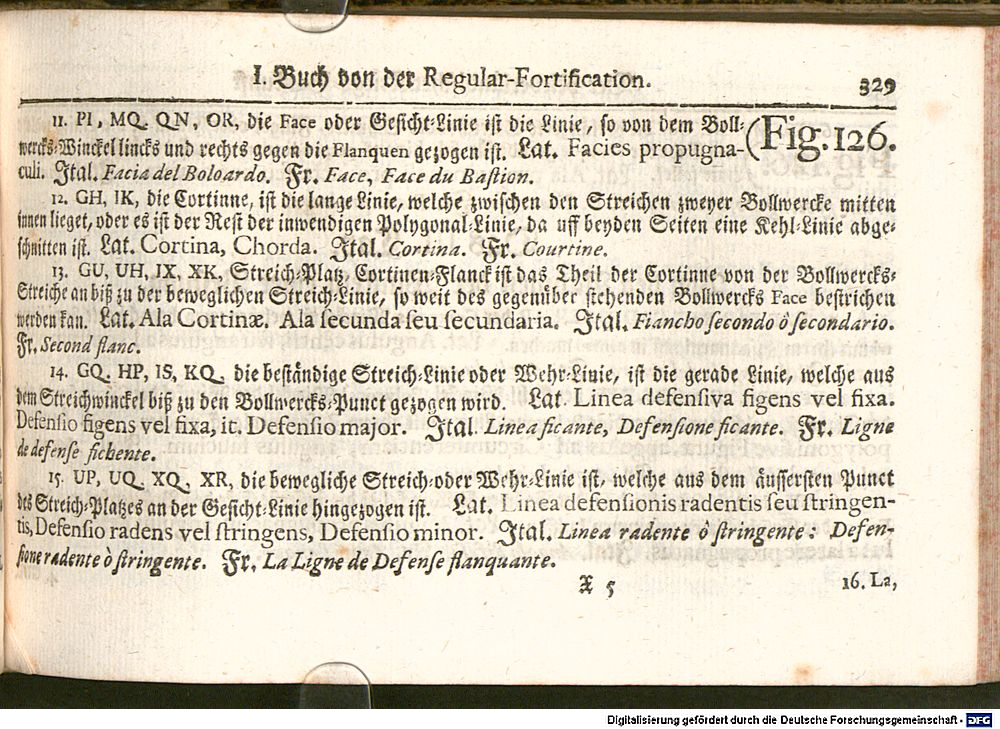 I. Buch von der Regular-Fortification. 329
11. PI, MQ. QN, OR, die Face oder Gesicht-Linie ist die Linie, so von dem Boll- (Fig. 126.
wercks-Winckel lincks und rechts gegen die Flanquen gezogen ist. Lat. Facies propugna-
culi. Ital. Facia del Boloardo. Fr. Face, Face du Bastion.
12. GH, IK, die Cortinne, ist die lange Linie, welche zwischen den Streichen zweyer Bollwercke mitten
innen lieget, oder es ist der Rest der inwendigen Polygonal-Linie, da uff beyden Seiten eine Kehl-Linie abge-
schnitten ist. Lat. Cortina, Chorda. Ital. Cortina. Fr. Courtine.
13. GU, UH, IX, XK, Streich-Platz, Cortinen-Flanck ist das Theil der Cortinne von der Bollwercks-
Streiche an biß zu der beweglichen Streich-Linie, so weit des gegenüber stehenden Bollwercks Face bestrichen
werden kan. Lat. Ala Cortinæ. Ala secunda seu secundaria. Ital. Fiancho secondo ò secondario.
Fr. Second flanc.
14. GQ. HP, IS, KQ. die beständige Streich-Linie oder Wehr-Linie, ist die gerade Linie, welche aus
dem Streichwinckel biß zu den Bollwercks-Punct gezogen wird. Lat. Linea defensiva figens vel fixa.
Defensio figens vel fixa, it. Defensio major. Ital. Linea ficante, Defensione ficante. Fr. Ligne
de defense fichente.
15. UP, UQ. XQ, XR, die bewegliche Streich-oder Wehr-Linie ist, welche aus dem äussersten Punct
des Streich-Platzes an der Gesicht-Linie hingezogen ist. Lat. Linea defensionis radentis seu stringen-
tis, Defensio radens vel stringens, Defensio minor. Ital. Linea radente ò stringente: Defen-
sione radente ò stringente. Fr. La Ligne de Defense flanquante.
X 5 16. La,
Digitalisierung gefördert durch die Deutsche Forschungsgemeinschaft - DFG